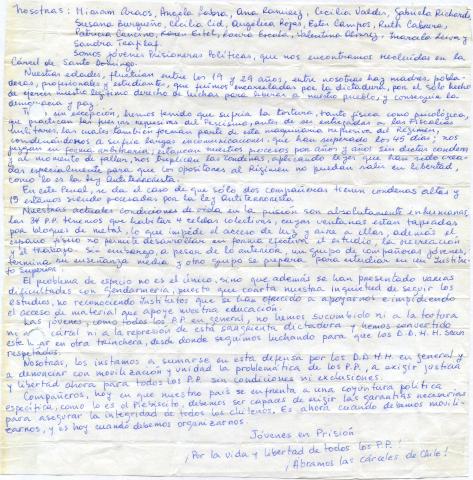 Nosotras: Miriam Araos, Angela Jobra, Ana Ramirez, Cecilia Valdes, Gabriela Richards
Susana Burgueño, Cecilia Cid, Angelica Rojas, Ester Campos, Ruth Cabrera,
Patricia Cancino, Karen Eitel, Laura Escala, Valentina Alvarez, Marcela Leiva y
Sandra
Somos jóvenes Prisioneras Políticas, que nos encontramos recluidas en la
Cárcel de Santo Domingo.
Nuestras edades, fluctúan entre los 19 y 29 años, entre nosotras hay madres, pobla-
doras, profesionales y estudiantes, que fuimos encarceladas por la dictadura, por el sólo hecho
de ejercer nuestro legítimo derecho de luchar para liberar a nuestro pueblo, y conseguir la
democracia y paz.
excepción, hemos tenido que sufrir la tortura, tanto física como psicológica,
que practican las fuerzas represivas del Fascismo, antes de ser entregadas a las Fiscalías
Militares, las cuales también forman parte de esta maquinaria represiva del Régimen,
condenándonos a sufrir largas incomunicaciones que han superado los 45 días, nos
juzgan en forma arbitraria, estancan nuestros procesos por años y años sin dictar condena
y al momento de fallar, nos triplican las condenas, aplicando leyes que han sido crea-
das especialmente para que los opositores al Régimen no puedan salir en libertad,
como lo es la ley Antiterrorista.
En este Penal, se da el caso de que sólo dos compañeras tienen condenas altas y
19 estamos siendo procesadas por la ley Antiterrorista.
Nuestras actuales condiciones de vida en la prisión son absolutamente inhumanas,
las 34 P.P. tenemos que habitar 4 celdas colectivas, cuyas ventanas están tapadas
por bloques de metal, lo que impide el acceso de luz y aire a ellas, además el
espacio físico no permite desarrollar en forma efectiva el estudio, la recreación
y el trabajo. Sin embargo, a pesar de lo anterior, un grupo de compañeras jóvenes,
termina su enseñanza media, y otro grupo se prepara para estudiar en un Instituto
Superior.
El problema de espacio no es el único, sino que además se han presentado varias
dificultades con Gendarmería, puesto que coarta nuestra inquietud de seguir los
estudios, no reconociendo institutos que se han ofrecido a apoyarnos e impidiendo
el acceso de material que apoye nuestra educación.
Las jóvenes, como todos los P.P. en general, no hemos sucumbido ni a la tortura
ni a la cárcel ni a la represión de esta sangrienta dictadura y hemos convertido
este lugar en otra trinchera, desde donde seguimos luchando para que los D.D. H.H. sean
respetados.
Nosotras, los instamos a sumarse en esta defensa por los D.D. H.H. en general y
a demarcar con movilización y unidad la problemática de los P.P., a exigir justicia
y libertad ahora para todos los P.P. sin condiciones ni exclusiones.
Compañeros, hoy en que nuestro país se enfrenta a una coyuntura política
específica, como lo es el Plebiscito, debemos ser capaces de exigir las garantías necesarias
para asegurar la integridad de todos los chilenos. Es ahora cuando debemos movili-
zarnos, y es hoy cuando debemos organizarnos.
Jóvenes en Prisión
¡Por la vida y libertad de todos los P.P.!
¡Abramos las cárceles de Chile!